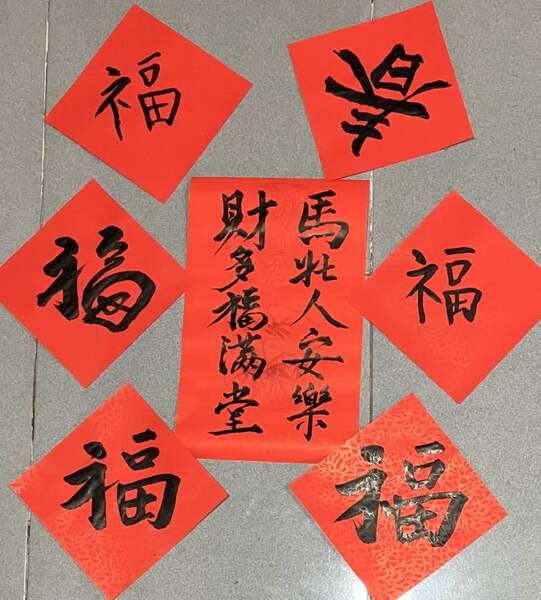 福
春
馬壯人安樂
財多福滿堂
福
福
福
福